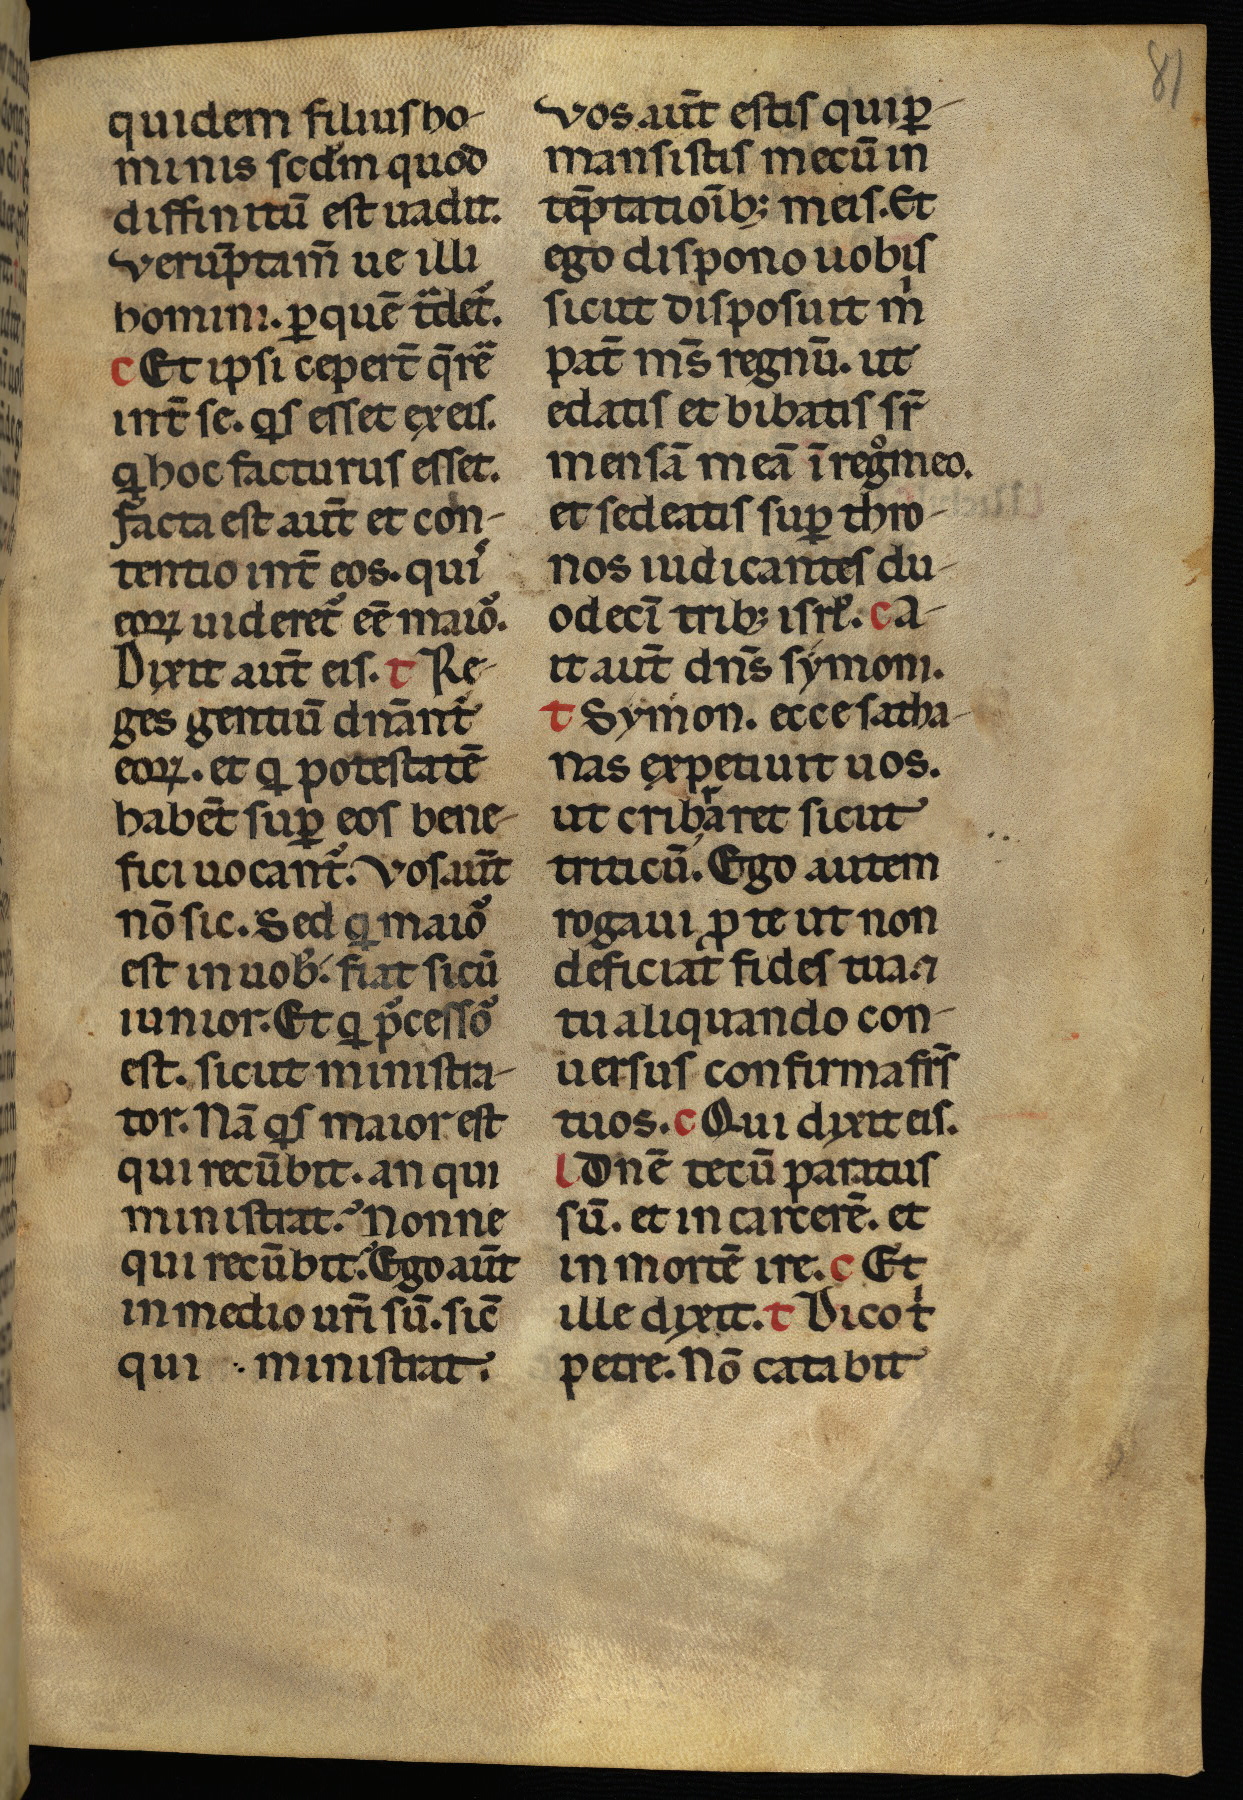 81
quidem filius ho-
minis scdm quod
diffinitū est uadit.
veruptam̄ ue illi
homini. ꝑ quē tͣdet᷑.
c Et ipsi ceper̄t q̄reͤ
int̄ se. qͥs esset ex eis.
qͥ hoc facturus esset.
facta est aut̄ et con-
tentio int̄ eos. quiˢ
eoꝝ uideret᷑ eē maio᷑.
Dixit aut̄ eis. t Re-
ges gentiū dn̄ant᷑
eoꝝ. et qͥ potestatē
habēt suꝑ eos bene-
fici uocant᷑. Vos aut̄
nō sic. Sed qͥ maio᷑
est in uob᷑. fiat sicū
iunior. Et qͥ p̄cesso᷑
est. sicut ministra-
tor. Nā qͥs maior est
qui recūbit. an qui
ministrat? Nonne
qui recūbit? Ego aut̄
in medio ur̄i sū. sic̄
qui ministrat.
Vos aut̄ estis qui ꝑ-
mansistis mecū in
tēptatioīb; meis. Et
ego dispono uobis
sicut disposuit mͥ
pat̄ ms̄ regnū. ut
edatis et bibatis sr̄
mensā meā ī regͦ meo.
et sedeatis suꝑ thro-
nos iudicantes du-
odecī trib; isrl̄. c A-
it aut̄ dn̄s symoni.
t Symon. ecce satha-
nas expetiuit uos.
ut cribaret sicut
triticū. Ego autem
rogaui ꝓ te ut non
deficiat fides tua. ⁊
tu aliquando con-
uersus confirma fr̄s
tuos. c Qui dixit eis.
l Dn̄e tecū paratus
sū. et in carcerē. et
in mortē ire. c Et
ille dixit. t Dico tͥ
petre. Nō catabit